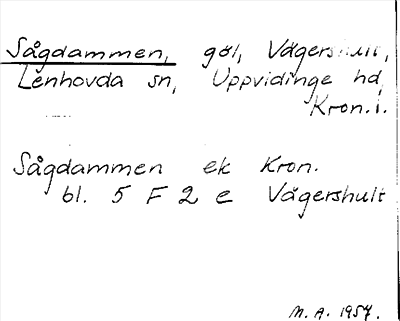 Sågdammen, göl, Vägershult,
Lenhovda sn, Uppvidinge hd,
Kron.l.
Sågdammen ek Kron.
bl. 5 F 2 e Vägershult
M.A. 1957.